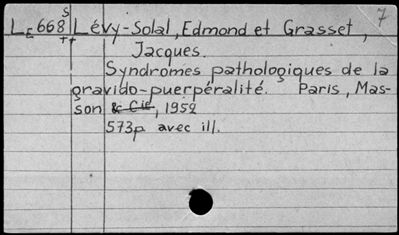 7
S
LE668 Lévy-Solal, Edmond et Grasset,
++
Jacques.
Syndromes pathologiques de la
gravido-puerpéralité. Paris, Mas-
son & Cie, 1952
573p avec ill.